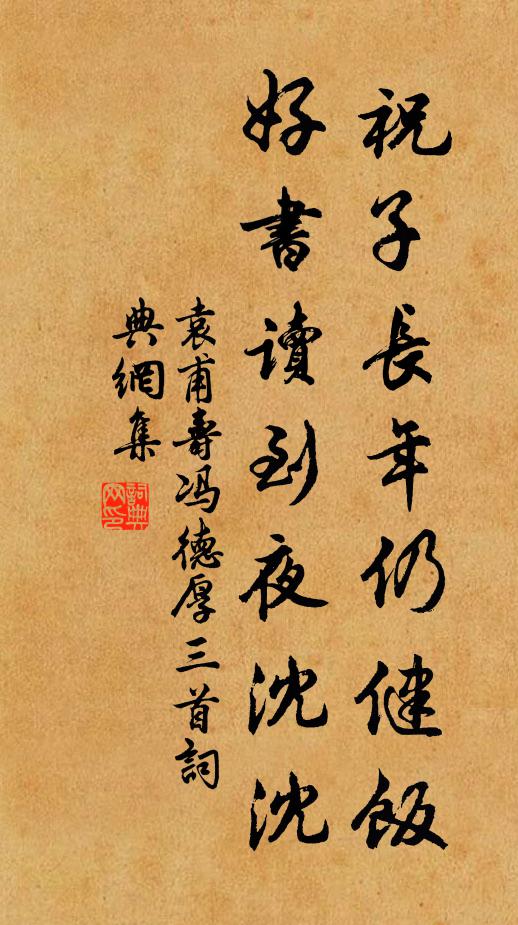 祝子長年仍健飯
好書讀到夜沈沈
袁甫壽冯德厚三首詞
典網集
詞典网印